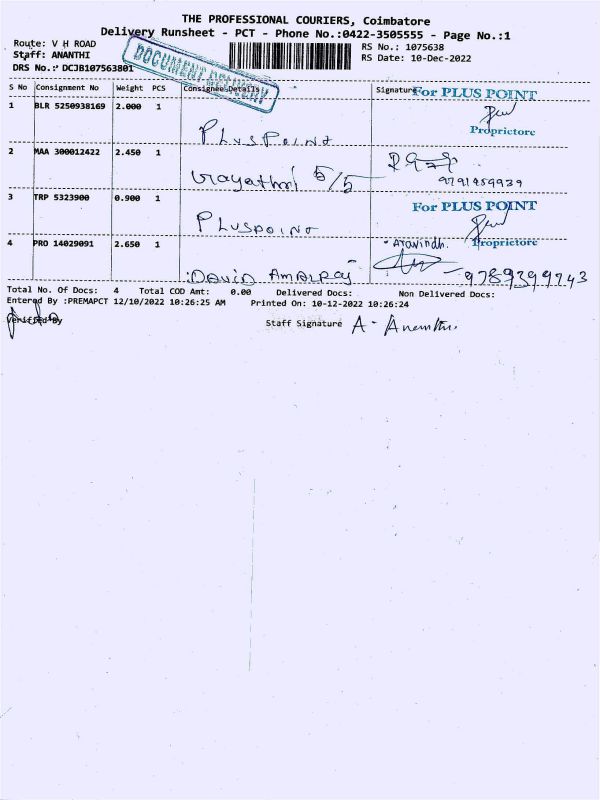 THE PROFESSIONAL COURIERS, Coimbatore
Delivery Runsheet - PCT - Phone No.:0422-3505555 - Page No.:1
Route: V H ROAD
RS No.: 1075638
Staff: ANANTHI
RS Date: 10-Dec-2022
DRS No.: DCJB107563801
DOCUMENT DELIVERY
S No Consignment No Weight PCS Consignee Details Signature
For PLUS POINT
1 BLR 5250938169 2.000 1
PLUSPOINT
Proprictore
2 MAA 300012422 2.450 1
Gayathri 5/5
9791959939
3 TRP 5323900 0.900 1
For PLUS POINT
PLUSPOINT
Proprictore
4 PRO 14029091 2.650 1
Aravindh.
DAVID AMALRAJ
9789399743
Total No. Of Docs: 4 Total COD Amt: 0.00 Delivered Docs: Non Delivered Docs:
Entered By :PREMAPCT 12/10/2022 10:26:25 AM Printed On: 10-12-2022 10:26:24
Verified By
Staff Signature A. Ananthi.